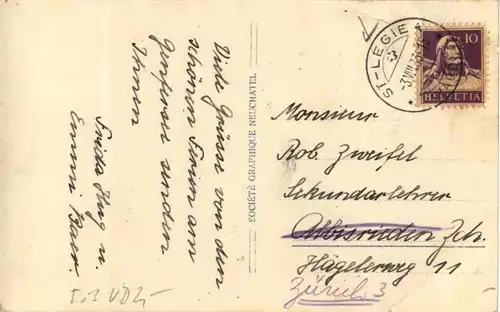 Viele Grüsse von den
schönen Ferien am
Genfersee senden
Ihnen
Frida Hug u.
Emmi
SOCIÉTÉ GRAPHIQUE NEUCHATEL
ST-LEGIER
10
HELVETIA
Monsieur
Rob. Zweifel
Sekundarlehrer
Albisrieden Zch.
Hägelerweg 11
Zürich 3